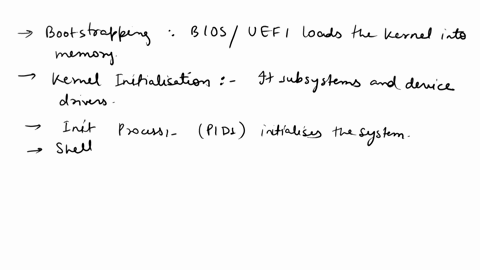 → Bootstrapping : BIOS / UEFI loads the kernel into
memory.
→ Kernel Initialisation :- It subsystems and device
drivers.
→ Init Process:- (PID1) initialises the system.
→ Shell